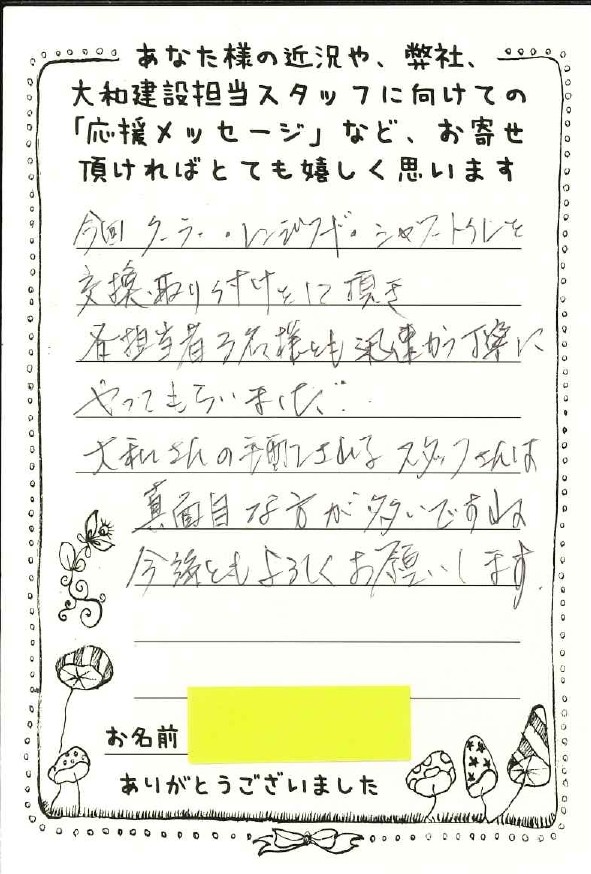 あなた様の近況や、弊社、
大和建設担当スタッフに向けての
「応援メッセージ」など、お寄せ
頂ければとても嬉しく思います
今回クーラー・レンジフード・シャワートイレを
交換、取り付けをして頂き
各担当者3名様とも迅速かつ丁寧に
やってもらいました。
大和さんの手配されるスタッフさんは
真面目な方が多いですね
今後ともよろしくお願いします。
お名前
ありがとうございました